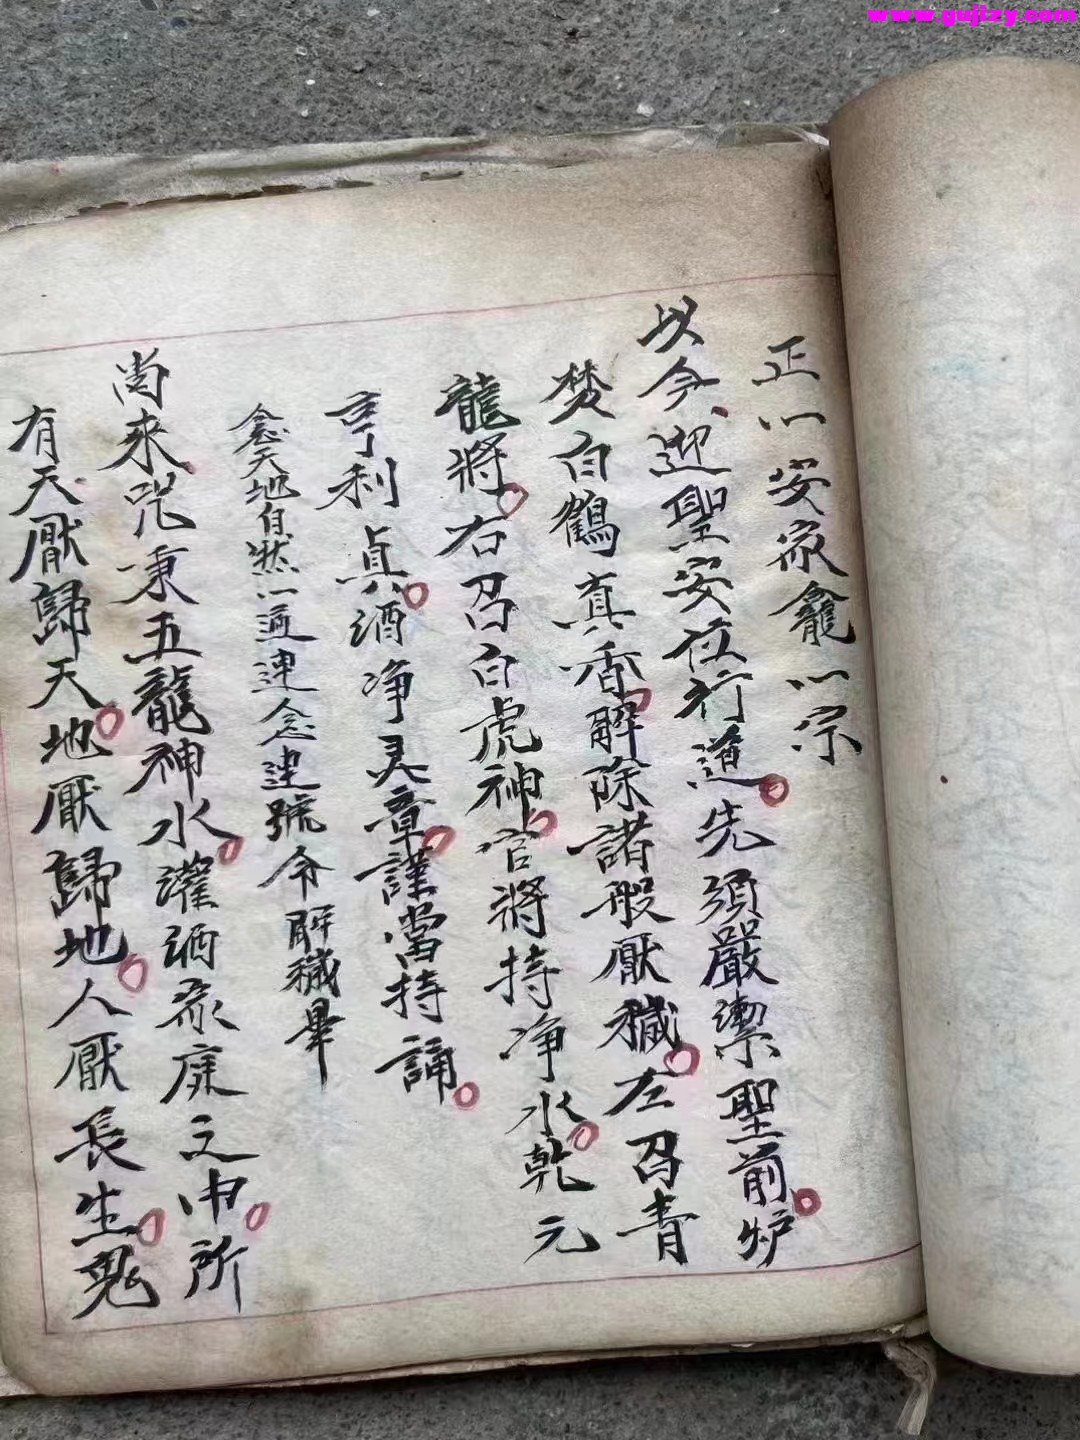 www.gujizy.com
正一安家龕一宗
以今迎聖安位行道先須嚴潔聖前炉
焚白鶴真香解除諸般厭穢左召青
龍將右召白虎神官將持净水乾元
亨利貞洒净灵章謹當持誦
念天地自然一遍連念建號令解穢畢
尚來咒秉五龍神水灌洒家庭之中所
有天厭歸天地厭歸地人厭長生鬼